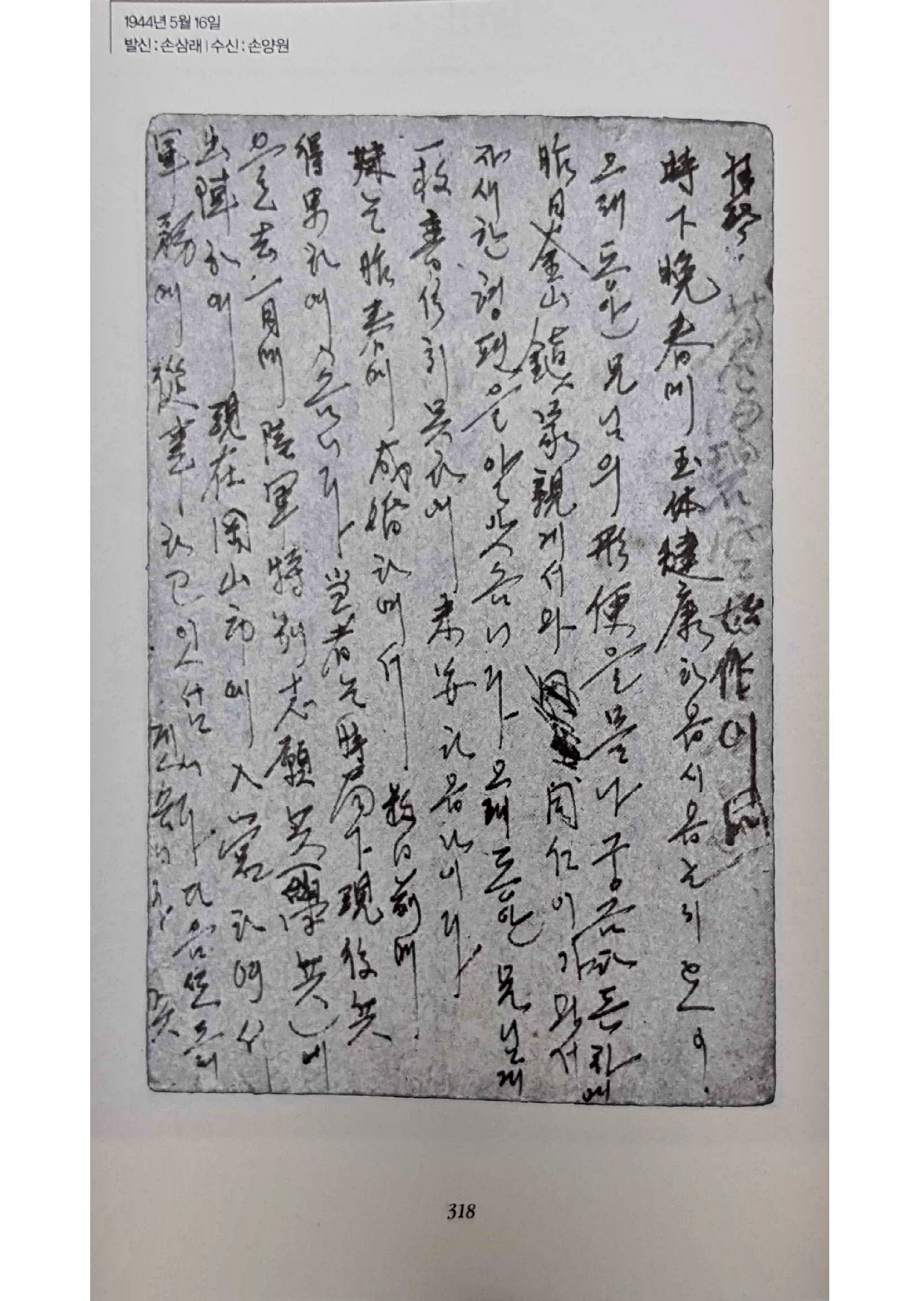 1944년 5월 16일
발신 : 손삼래 | 수신 : 손양원
拝啓
始作이
時下晩春에 玉体健康하옵시옵는지요
오래동안 兄님의 形便을 몰나 궁금하든차에
昨日釜山鎮家親게서와 同仁이가 와서
자세한 형편을 알앗슴니다 오래동안 兄님게
一枚書信취 못하여 未安하옵나이다
妹는 昨春에 成婚하여서 数日前에
得男하여슴니다 当者는 時局下現役兵
으로 去 月에 陸軍特別志願兵(學兵)에
出陣하여 現在岡山市에 入営하여서
軍務에 從事하고 잇슴니다 다음
318